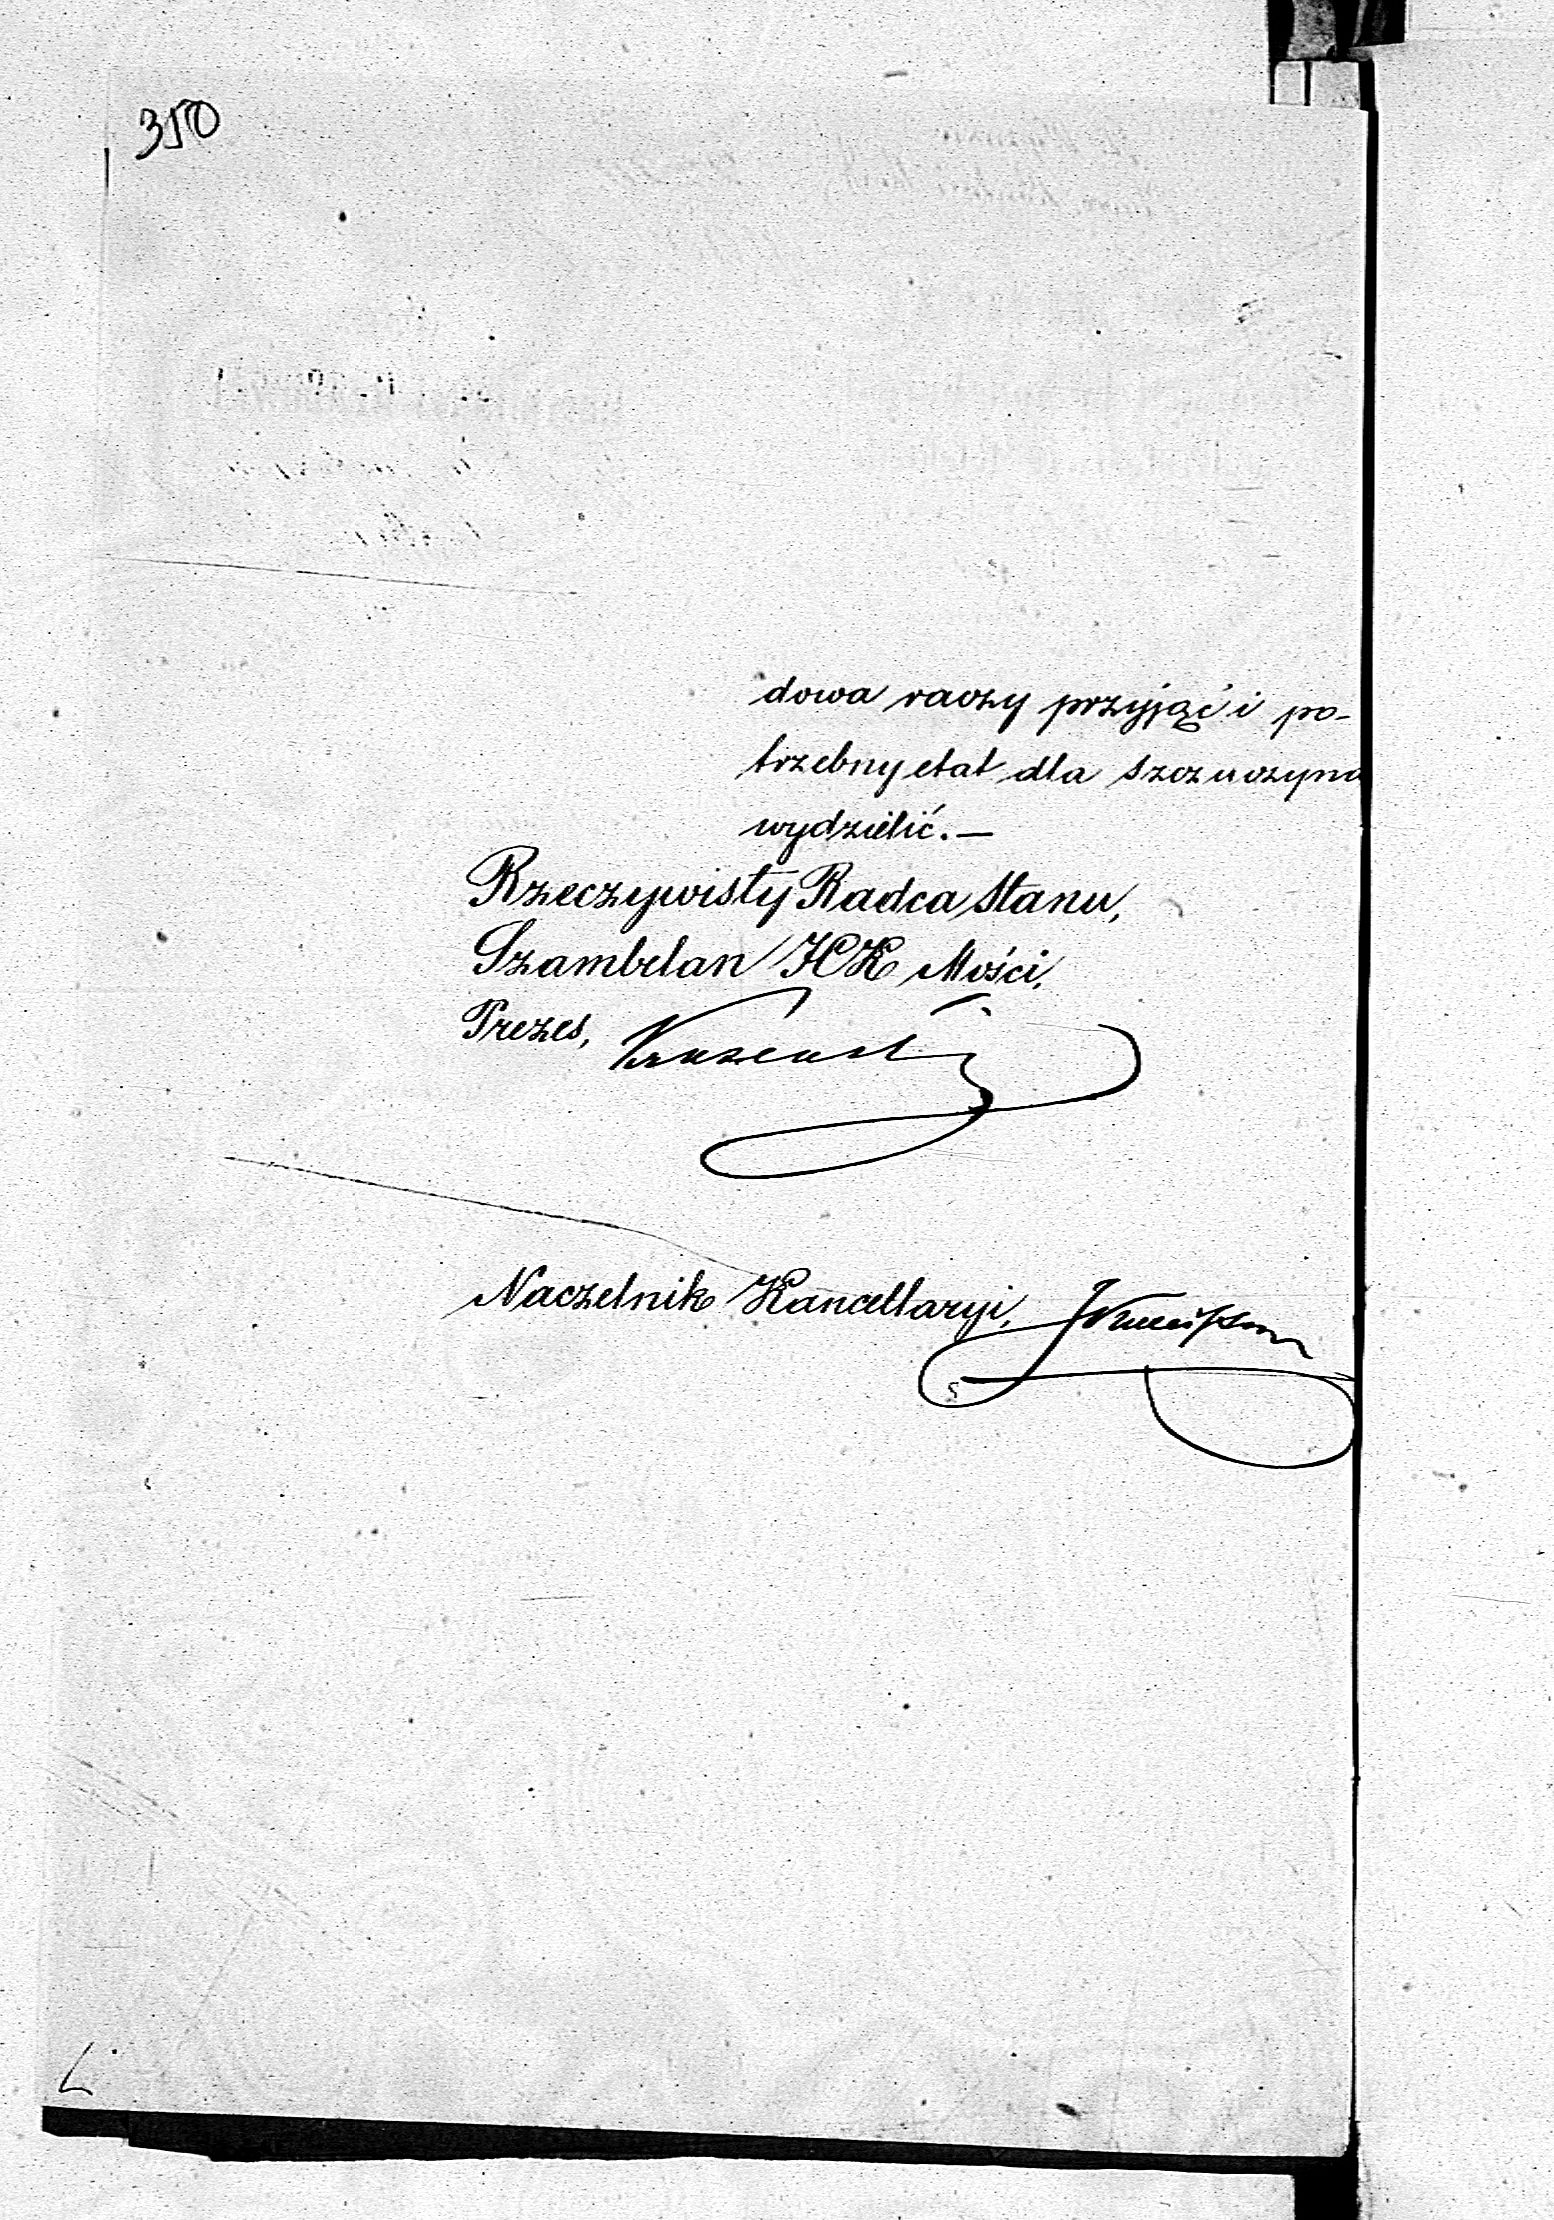 350
dowa raczy przyjąć i po-
trzebny etat dla Szczuczyna
wydzielić. —
Rzeczywisty Radca Stanu,
Szambelan JCK Mości,
Prezes,
Naczelnik Kancellaryi,